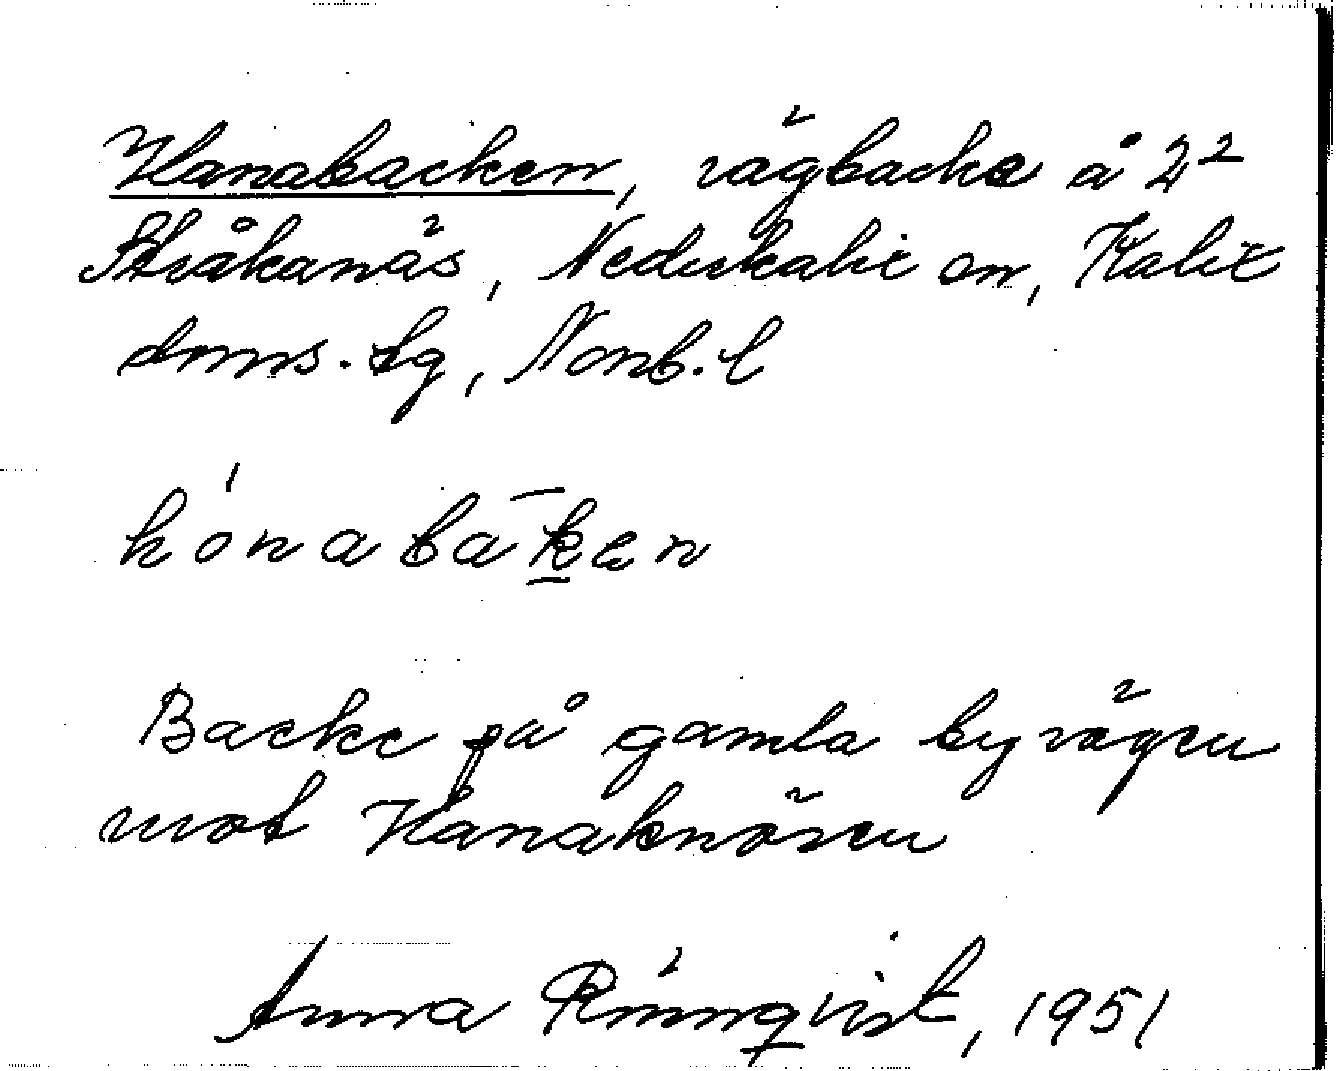 Hanabacken, vägbacke å 2²
Stråkanäs, Nederkalix sn, Kalix
doms. tg, Norrb. l
hónabak̄en
Backe på gamla byvägen
mot Hanaknösen
Anna Rönnqvist, 1951